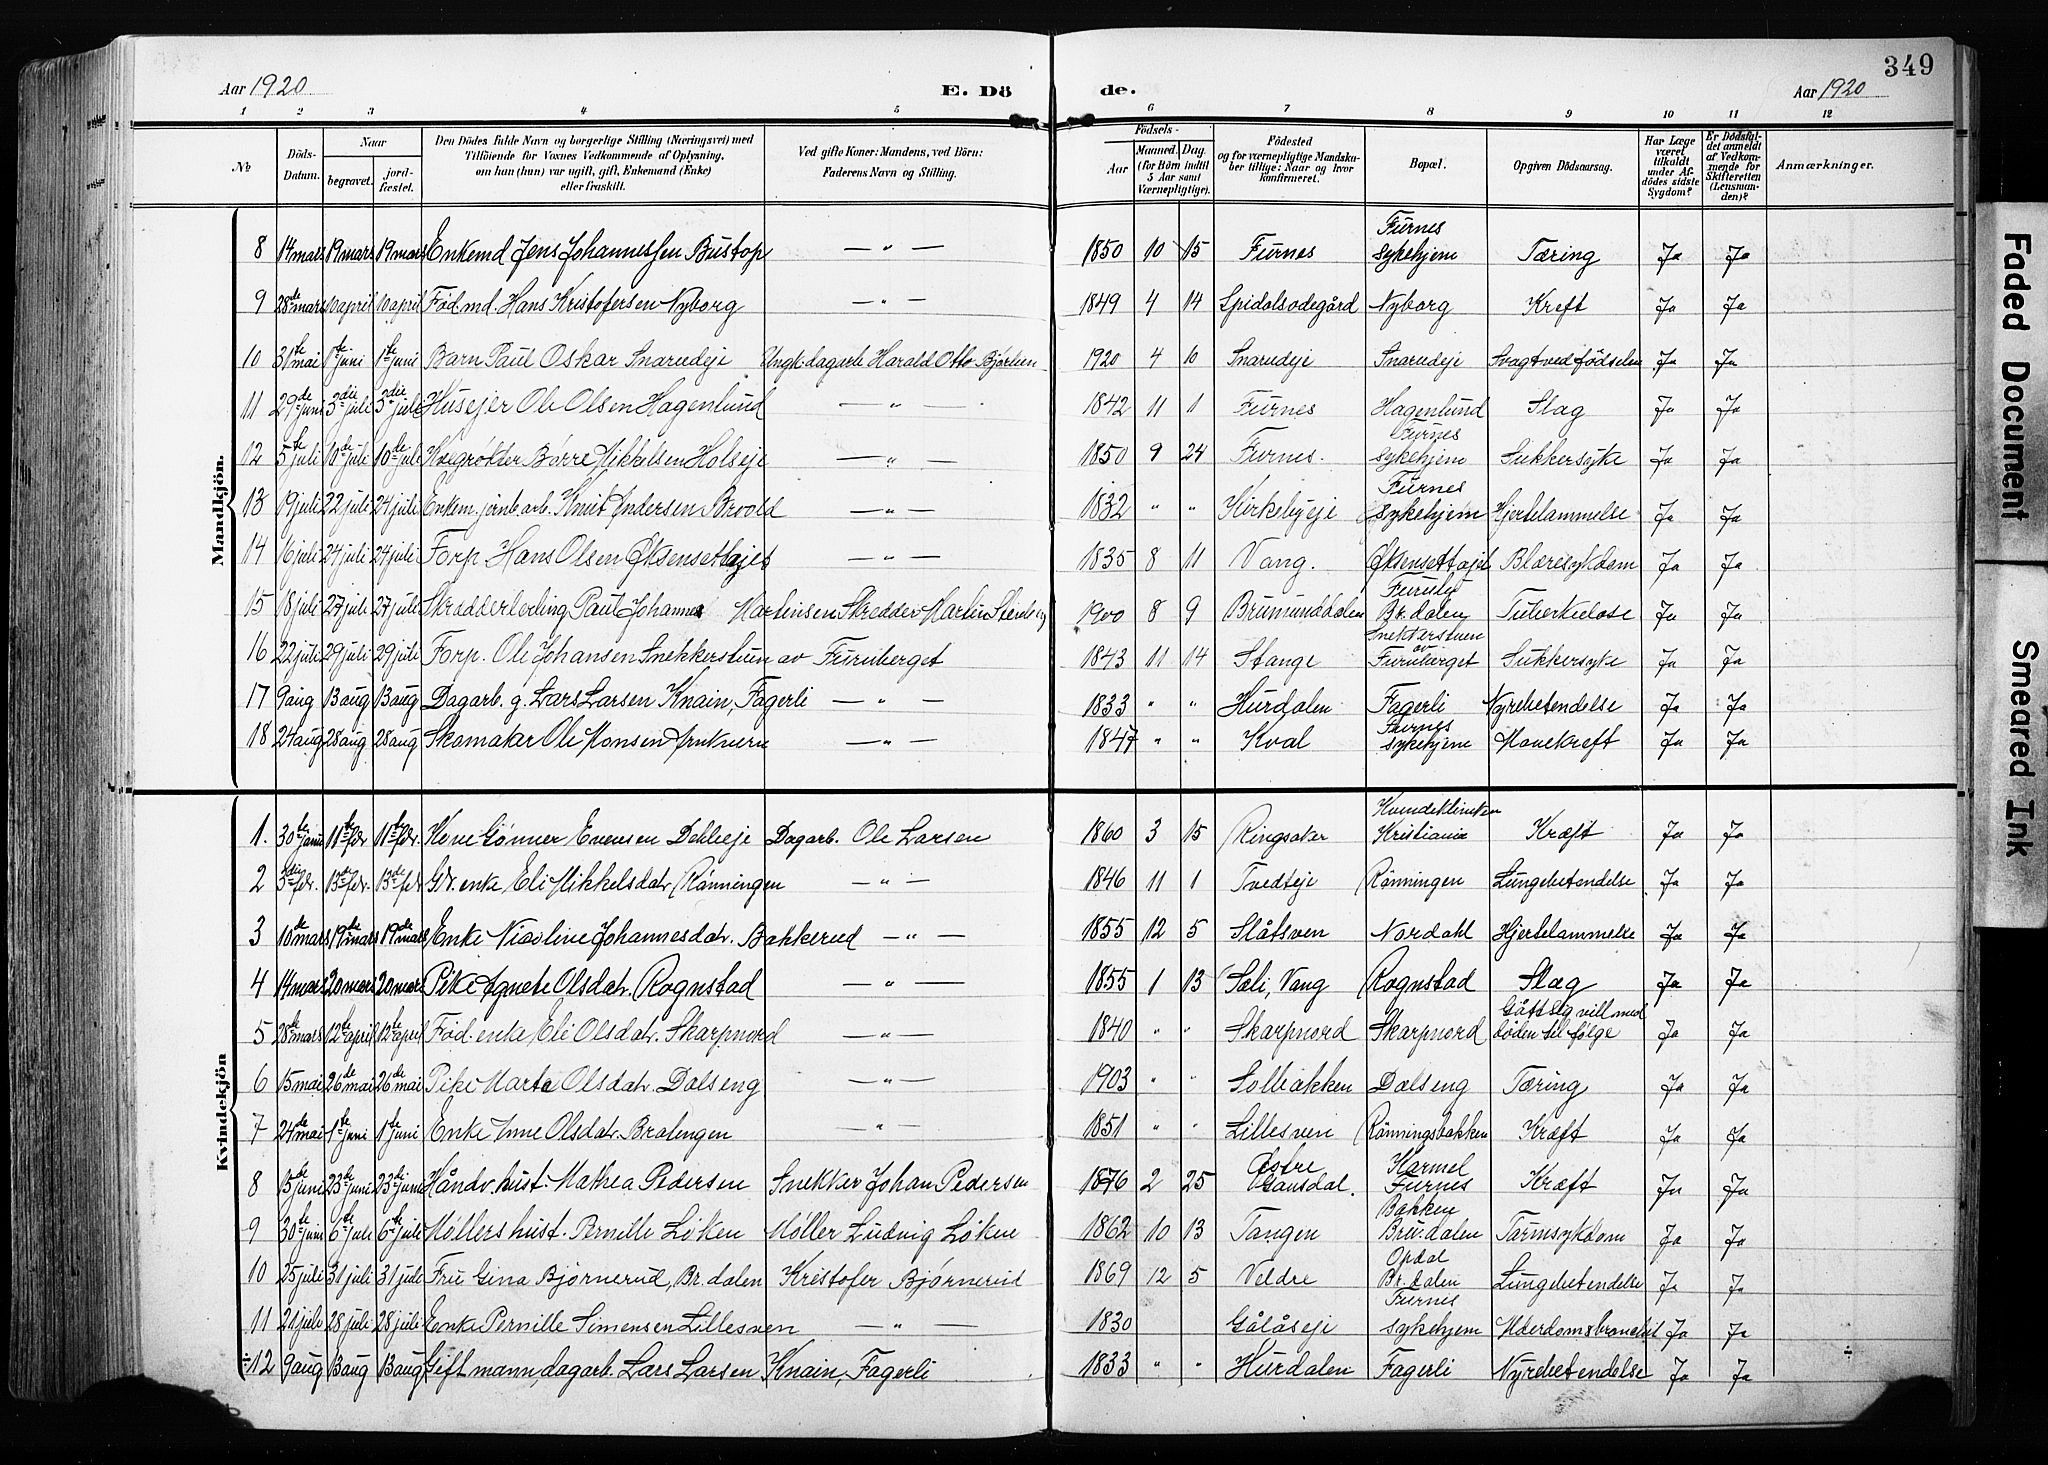 349
Aar 1920
E. Dö
de.
Aar 1920
1 2 3 4 5 6 7 8 9 10 11 12
No
Döds-Datum.
Naar
begravet.
jord-fæstet.
Den Dödes fulde Navn og borgerlige Stilling (Næringsvei) med Tilföiende for Voxnes Vedkommende af Oplysning, om han (hun) var ugift, gift, Enkemand (Enke) eller fraskilt.
Ved gifte Koner: Mandens, ved Börn: Faderens Navn og Stilling.
Födsels-
Aar
Maaned. Dag.
(for Börn indtil 5 Aar samt Værnepligtige).
Födested
og for værnepligtige Mandskaber tillige: Naar og hvor konfirmeret.
Bopæl.
Opgiven Dödsaarsag.
Har Læge været tilkaldt under Afdödes sidste Sygdom?
Er Dödsfaldet anmeldt af Vedkommende for Skifteretten (Lensmanden)?
Anmærkninger.
Mandkjön.
8 14 mars 19 mars 19 mars Enkemd Jens Johannessen Bustop — " — 1850 10 15 Furnes Furnes Sykehjem Tæring Ja Ja
9 28de mars 10 april 10 april Föd.md. Hans Kristofersen Nyborg — " — 1849 4 14 Nyborg Kreft Ja Ja
10 31te mai 1te juni 1te juni Barn Paul Oskar Snarudeje Ungk. dagarb Harald Otto 1920 4 10 Snarudeje Snarudeje Svagt ved födselen Ja Ja
11 29de juni 3die juli 3die juli Husejer Ole Olsen Hagenlund — " — 1842 11 1 Furnes Hagenlund Slag Ja Ja
12 5te juli 10de juli 10de juli Børre Mikkelsen Holseje — " — 1850 9 24 Furnes. Furnes Sykehjem Sukkersyke Ja Ja
13 19 juli 22 juli 24 juli Enkem. jernb arb. Knut Andersen — " — 1832 " " Kirkebyeje Furnes Sykehjem Hjertelammelse Ja Ja
14 16 juli 24 juli 24 juli Forp. Hans Olsen — " — 1835 8 11 Vang. Blæresykdom Ja Ja
15 18 juli 27 juli 27 juli Skredderlerling Paul Johannes Martinsen Skredder Martin 1900 8 9 Brumunddalen Furuly Br.dalen Tuberkulose Ja Ja
16 22 juli 29 juli 29 juli Forp. Ole Johansen Snekkerstuen av Furuberget 1843 11 14 Stange Snekkerstuen av Furuberget Sukkersyke Ja Ja
17 9 aug 13 aug 13 aug Dagarb. g. Lars Larsen Knain, Fagerli — " — 1833 " " Hurdalen Fagerli Nyrebetendelse Ja Ja
18 24 aug 28 aug 28 aug Skomaker Ole Monsen — " — 1847 " " Kval Furnes Sykehjem Mavekreft Ja Ja
Kvindekjön
1. 30te 11te febr. 11te febr. Kone Gønner Evensen Dehlieje Dagarb. Ole Larsen 1860 3 15 Ringsaker Kvindeklinikken Kristiania Kræft Ja Ja
2 3die febr. 13de febr. 13de febr Gdr. enke Eli Mikkelsdatr. Rönningen — " — 1846 11 1 Tvedteje Rönningen Lungebetendelse Ja Ja
3 10de mars 19de mars 19de mars Enke Nicoline Johannesdatr. Bakkerud — " — 1855 12 5 Slåtsven Nordahl Hjertelammelse Ja Ja
4 14 mars 20 mars 20 mars Pike Agnete Olsdatr. Rognstad — " — 1855 1 13 Sæli, Vang Rognstad Slag Ja Ja
5 28de mars 12te april 12te april Föd. enke Eli Olsdatr. Skarpnord — " — 1840 " " Skarpnord Skarpnord Gått sig vill med döden til følge Ja Ja
6 15 mai 26de mai 26de mai Pike Marte Olsdatr. Dalseng — " — 1903 " " Solbakken Dalseng Tæring Ja Ja
7 24de mai 1te juni 1te juni Enke Anne Olsdatr. Bratengen — " — 1851 " " Lillesven Rönningsbakken Kræft Ja Ja
8 15de juni 23de juni 23de juni Håndv.hust. Mathea Pedersen Snekker Johan Pedersen 1876 2 25 Östre Gausdal. Karmel Furnes Kræft Ja Ja
9 30te juni 6te juli 6te juli Møllers hust. Pernille Løken Møller Ludvig Løken 1862 10 13 Tangen Bakken Bru.dalen Tarmsykdom Ja Ja
10 25 juli 31 juli 31 juli Fru Gina Bjørnerud, Br.dalen Kristofer Bjørnerud 1869 12 5 Veldre Opdal Br.dalen Lungebetendelse Ja Ja
11 21 juli 28 juli 28 juli Enke Pernille Simensen Lillesven — " — 1830 Gålåseje Furnes sykehjem Ja Ja
÷12 9 aug 13 aug 13 aug Gift mann, dagarb. Lars Larsen Knain, Fagerli 1833 " " Hurdalen Fagerli Nyrebetendelse Ja Ja ÷
Faded Document
Smeared Ink